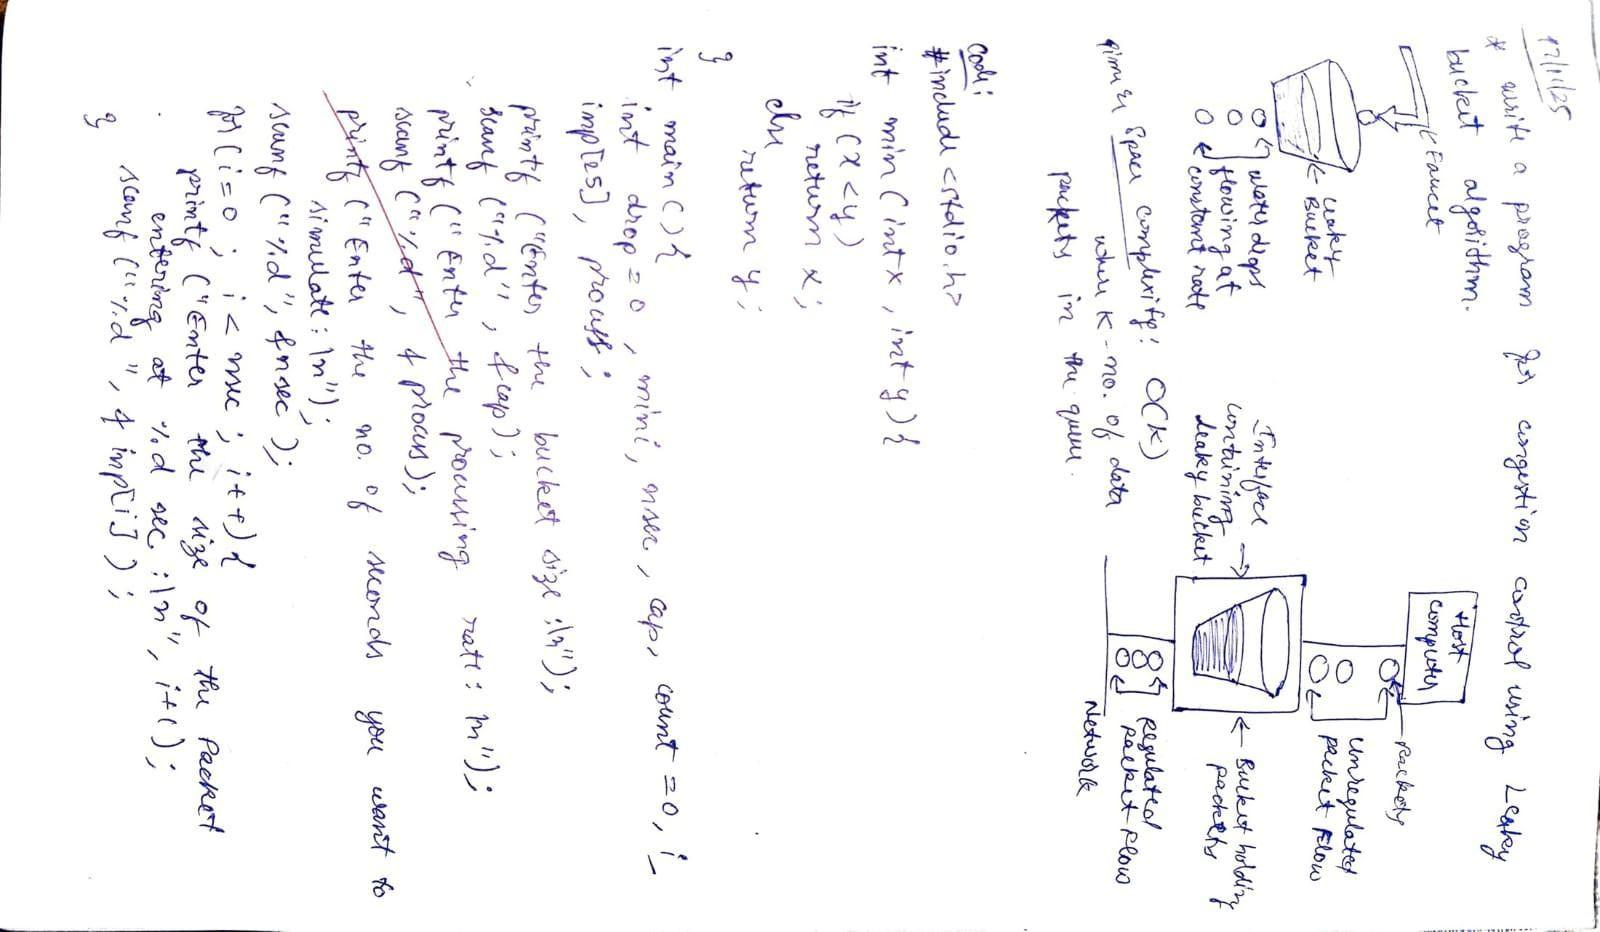 17/11/25
* write a program for congestion control using Leaky
bucket algorithm.
Faucet
Leaky
Bucket
water drops
flowing at
constant rate
Host
computer
Packets
Unregulated
packet Flow
Interface
containing
leaky bucket
Bucket holding
packets
Regulated
packet Flow
Network
Time & Space complexity: O(K)
where K - no. of data
packets in the queue.
Code:
#include <stdio.h>
int min(int x, int y){
if (x<y)
return x;
else
return y;
}
int main(){
int drop=0, mini, nsec, cap, count=0, i,
inp[25], process;
printf ("Enter the bucket size:\n");
scanf ("%d", &cap);
printf ("Enter the processing rate: \n");
scanf ("%d", & process);
printf ("Enter the no. of seconds you want to
simulate:\n");
scanf ("%d", &nsec);
for(i=0; i<nsec; i++){
printf ("Enter the size of the packet
entering at %d sec:\n", i+1);
scanf ("%d", & inp[i]);
}